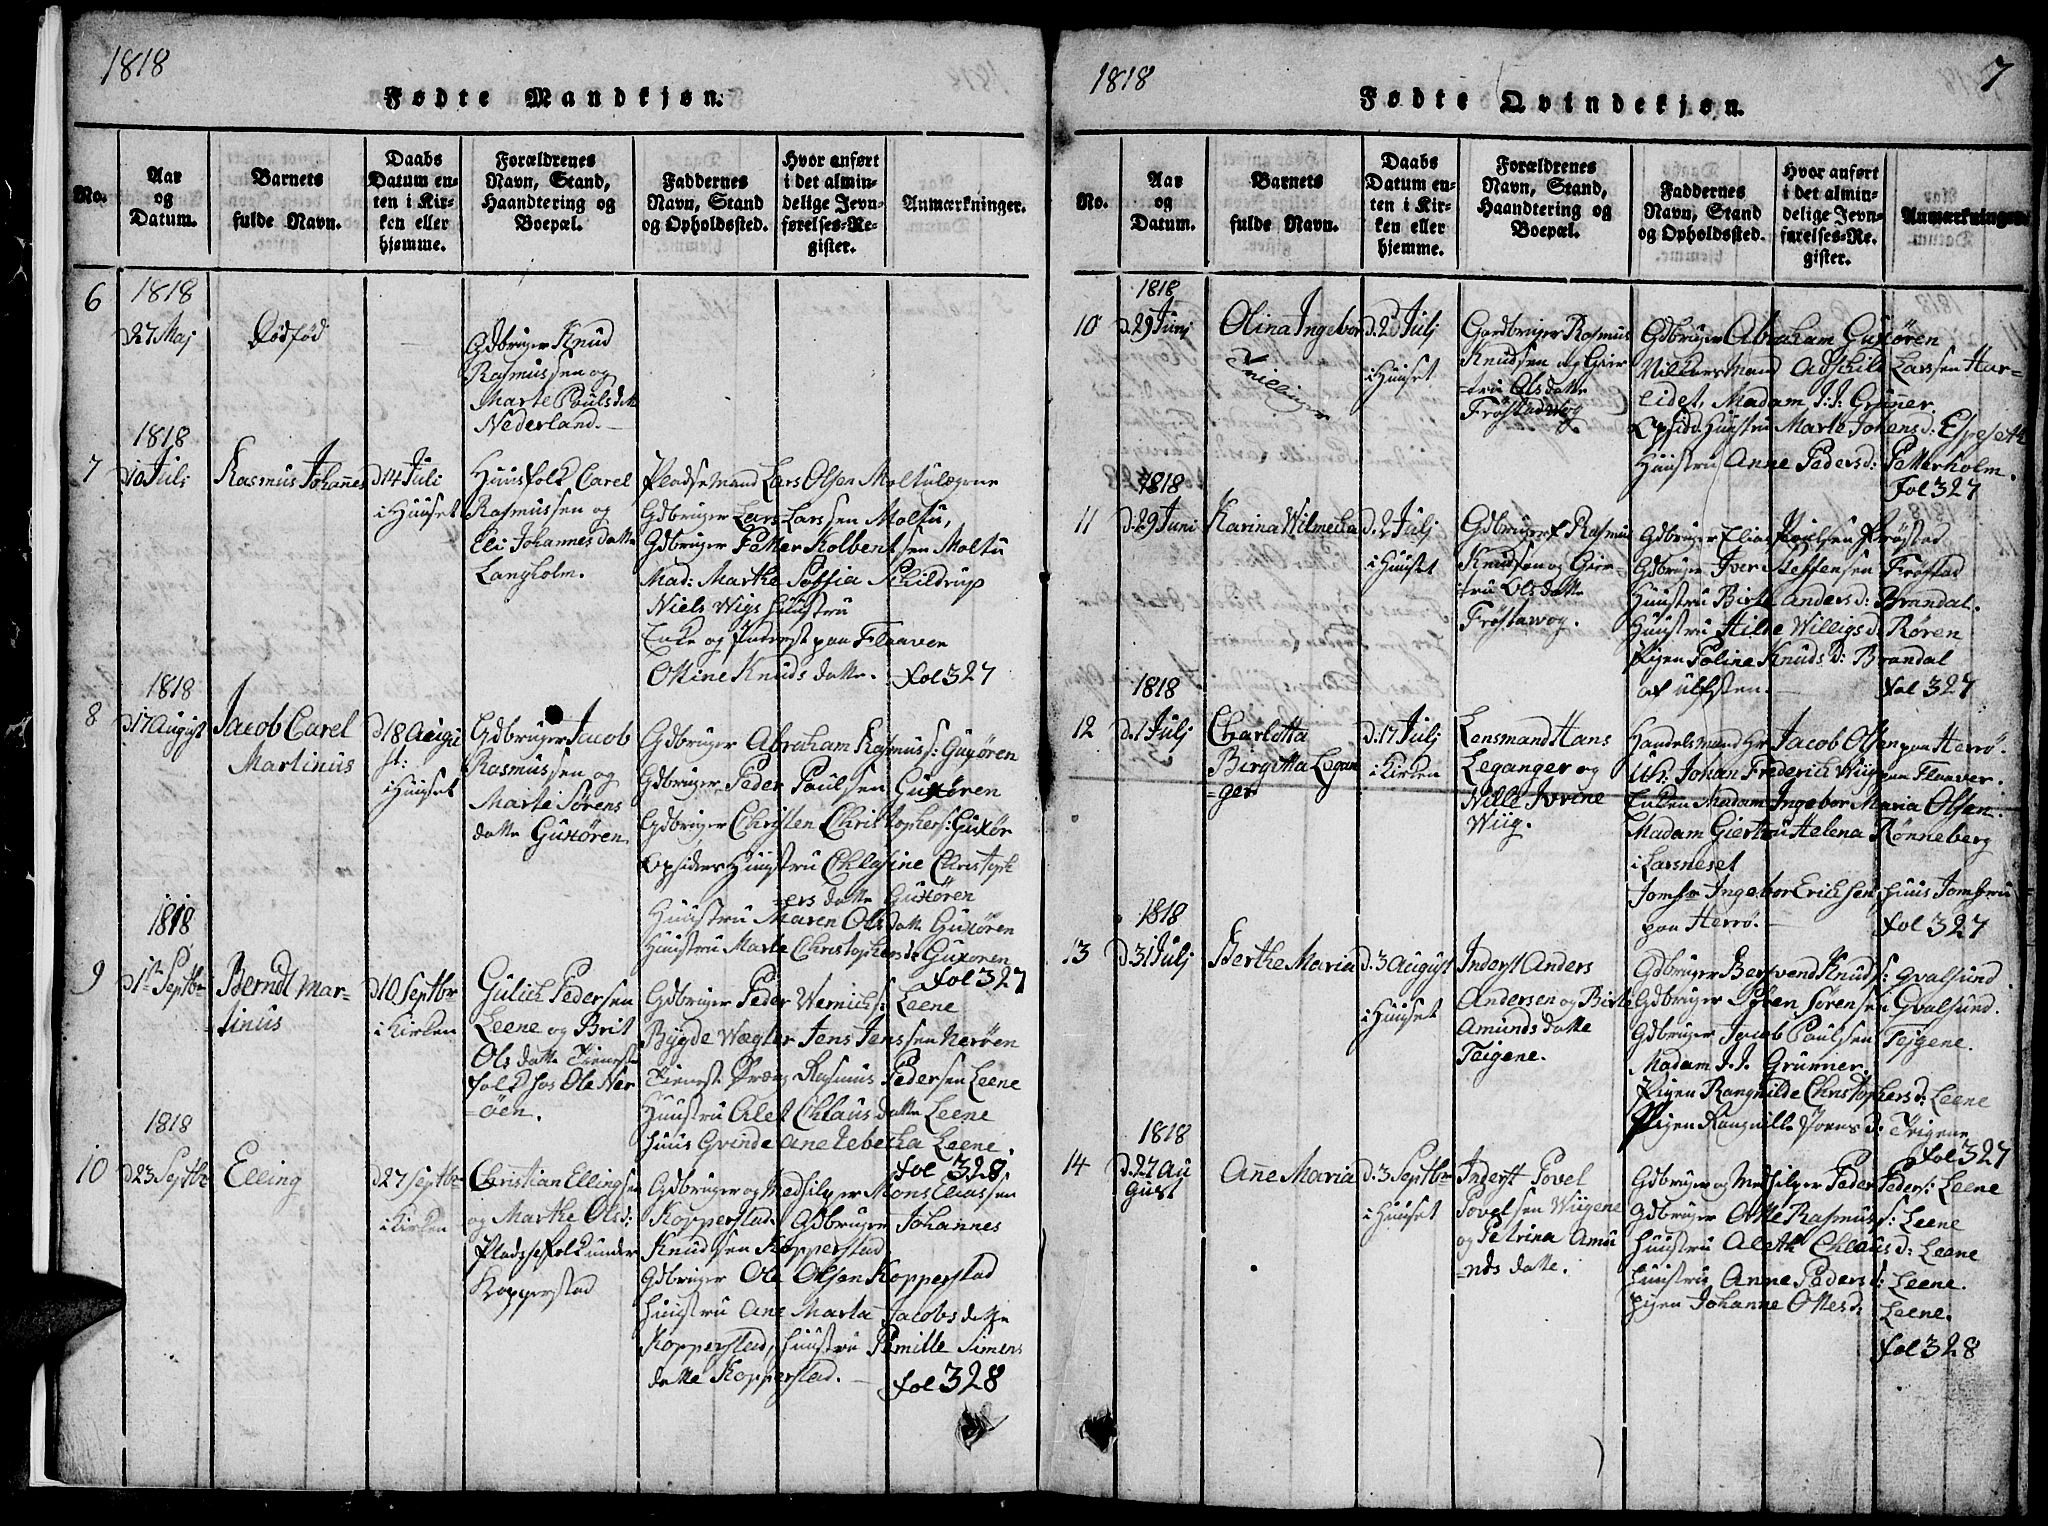 1818
Fødte Mandkjøn.
No.
Aar
og
Datum.
Barnets
fulde Navn.
Daabs
Datum en-
ten i Kir-
ken eller
hjemme.
Forældrenes
Navn, Stand,
Haandtering og
Boepæl.
Faddernes
Navn, Stand
og Opholdssted.
Hvor anført
i det almin-
delige Jevn-
førelses-Re-
gister.
Anmærkninger.
6
1818
d27 Maj
Dødfød
Gdbruger Knud
Rasmussen og
Marte Poulsdatt
Nederland.
7
1818
d10 Juli
Rasmus Johañes
d14 Juli
i Huuset
Huusfolk Carel
Rasmussen og
Eli Johannesdatte
Langholm.
Pladsemand Lars Olsen Moltulægene
Gdbruger Lars Larssen Moltu,
Gdbruger Petter Kolbentsen Moltu
Mad: Marthe Soffia Schildrup
Niels Wigs Huustru
Enke og Inderst paa Flaaver
Ottine Knudsdatte. fol 327
8
1818
d17 August
Jacob Carel
Martinus
d18 Augu
st:
i Huuset
Gdbruger Jacob
Rasmussen og
Marte Sørens
datte Guxøren
Gdbruger Abraham Rasmus s: Guxøren
Gdbruger Peder Paulsen Guxøren
Gdbruger Christen Christophers: Guxør
Opsiders Huustru Chlasine Christoph
=ers datte Guxøren
Huustru Maren Olsdatte Guxøren
Huustru Marte Christophersd: Guxøren
fol 327
9
1818
d1te Septbr
Berndt Mar-
tinus
d10 Septbr
i Kirken
Gulich Pedersen
Leene og Brit
Olsdatte Tieneste
folk hos Ole Ner
=øen.
Gdbruger Peder Wernichs: Leene
Bygde Vægter Jens Jenssen Nerøen
Tieneste Dræng Rasmus Pedersen Leene
Huustru Alet Chlausdatte Leene
Huus Qvinde Ane Rebecha Leene.
fol 328
10
1818
d23 Septbr
Elling
d27 Septbr
i Kirken
Christian Ellingsen
og Marthe Olsd:
Pladssefolk under
Kopperstad
Gdbruger og Medhilper Mons Eliassen
Kopperstad Gdbruger Johannes
Knudsen Kopperstad
Gdbruger Ole Olsen Kopperstad
Huustru Ane Marta Jacobsdatte
Kopperstad, Huustru Pernille Simens
datte Kopperstad. fol 328
1818
7
Fødte Qvindekjøn.
No.
Aar
og
Datum.
Barnets
fulde Navn.
Daabs
Datum en-
ten i Kir-
ken eller
hjemme.
Forældrenes
Navn, Stand,
Haandtering og
Boepæl.
Faddernes
Navn, Stand
og Opholdssted.
Hvor anført
i det almin-
delige Jevn-
førelses-Re-
gister.
Anmærkninger.
10
1818
d.29 Juni
Olina Ingebor
Tvillinger
d.2 Julj
i Huuset
Gaardbruger Rasmus
Knudsen og Gier
=tru Olsdatte
Frøstadwog
Gdbruger Abraham Guxøren
Vilkorsmand Adschild Larssen Hur-
eidet, Madam J: J: Grüner
Opsidd. Huustru Marte Johensd: Espeseth
Huustru Anne Pedersd: Petterholm.
fol 327
11
1818
d.29 Juni
Karina Wilmecha
d.2 Julj
i Huuset
Gdbruger Rasmus
Knudsen og Gier
=tru Olsdatte
Frøstawog.
Gdbruger Elias Poulsen Frøstad
Gdbruger Iver Steffensen Frøstad
Huustru Birte Andersd: Brandal.
Huustru Hilde Willigsd: Røren
Pigen Poline Knudsd: Brandal
af Ulfsten.
fol 327
12
1818
d.1 Julj
Charlotta
Birgitta Legan
=ger
d.17 Julj
i Kirken
Lensmand Hans
Leganger og
Nille Ivrine
Wiig.
Handelsmand Hr Jacob Olsen paa Herrø.
Uk: Johan Frederich Wiig paa Flaaver.
Enken Madam Ingebor Maria Olsen.
Madam Giertru Helena Rønneberg
i Larsneset
Jomfr Ingebor Erichsen, Huus Jomfru
paa Herrø.
fol 327
13
1818
d.31 Julj
Berthe Maria
d.3 August
i Huuset
Inderst Anders
Andersen og Birte
Amundsdatte
Teigene.
Gdbruger Bersvend Knuds: Gvalsund
Gdbruger Søren Sørensen Gvalsund.
Gdbruger Jacob Paulsen Tejgene.
Madam J. J. Grunner.
Pigen Rangnilde Christophersd: Leene
Pigen Rangnille Joensd: Teigene
fol 327
14
1818
d.27 Au
gust
Añe Maria
d.3 Septbr
i Huuset
Inderst Povel
Povelsen Wiigene
og Petrina Amu
=nds datte.
Gdbruger og Medhilper Peder Peders: Leene
Gdbruger Otte Rasmuss: Leene
Huustru Aleth Chlausd: Leene
Huustru Anne Pedersd: Leene.
Pigen Johanne Ottesd: Leene.
fol 328